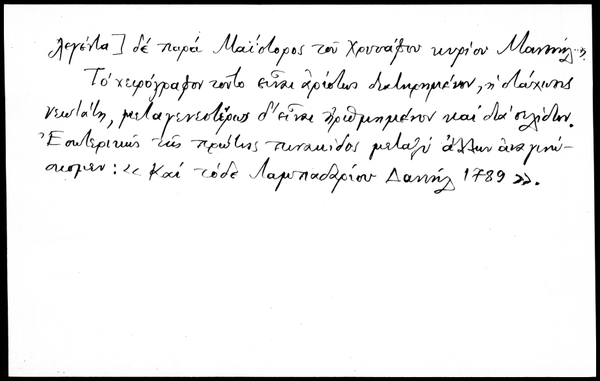 λεγέντα] δέ παρά Μαΐστορος τοῦ Χρυσάφου κυρίου Μανουήλ...».
Τό χειρόγραφον τοῦτο εἶναι ἀρίστως διατηρημένον, ἡ στάχωσις
νεωτάτη, μεταγενεστέρως δ' εἶναι ἠριθμημένον κατά σελίδων.
Ἐσωτερικῶς τῆς πρώτης πινακίδος μεταξύ ἄλλων ἀναγινώ-
σκομεν: «Καί τόδε Λαμπαδαρίου Δανιήλ 1789».